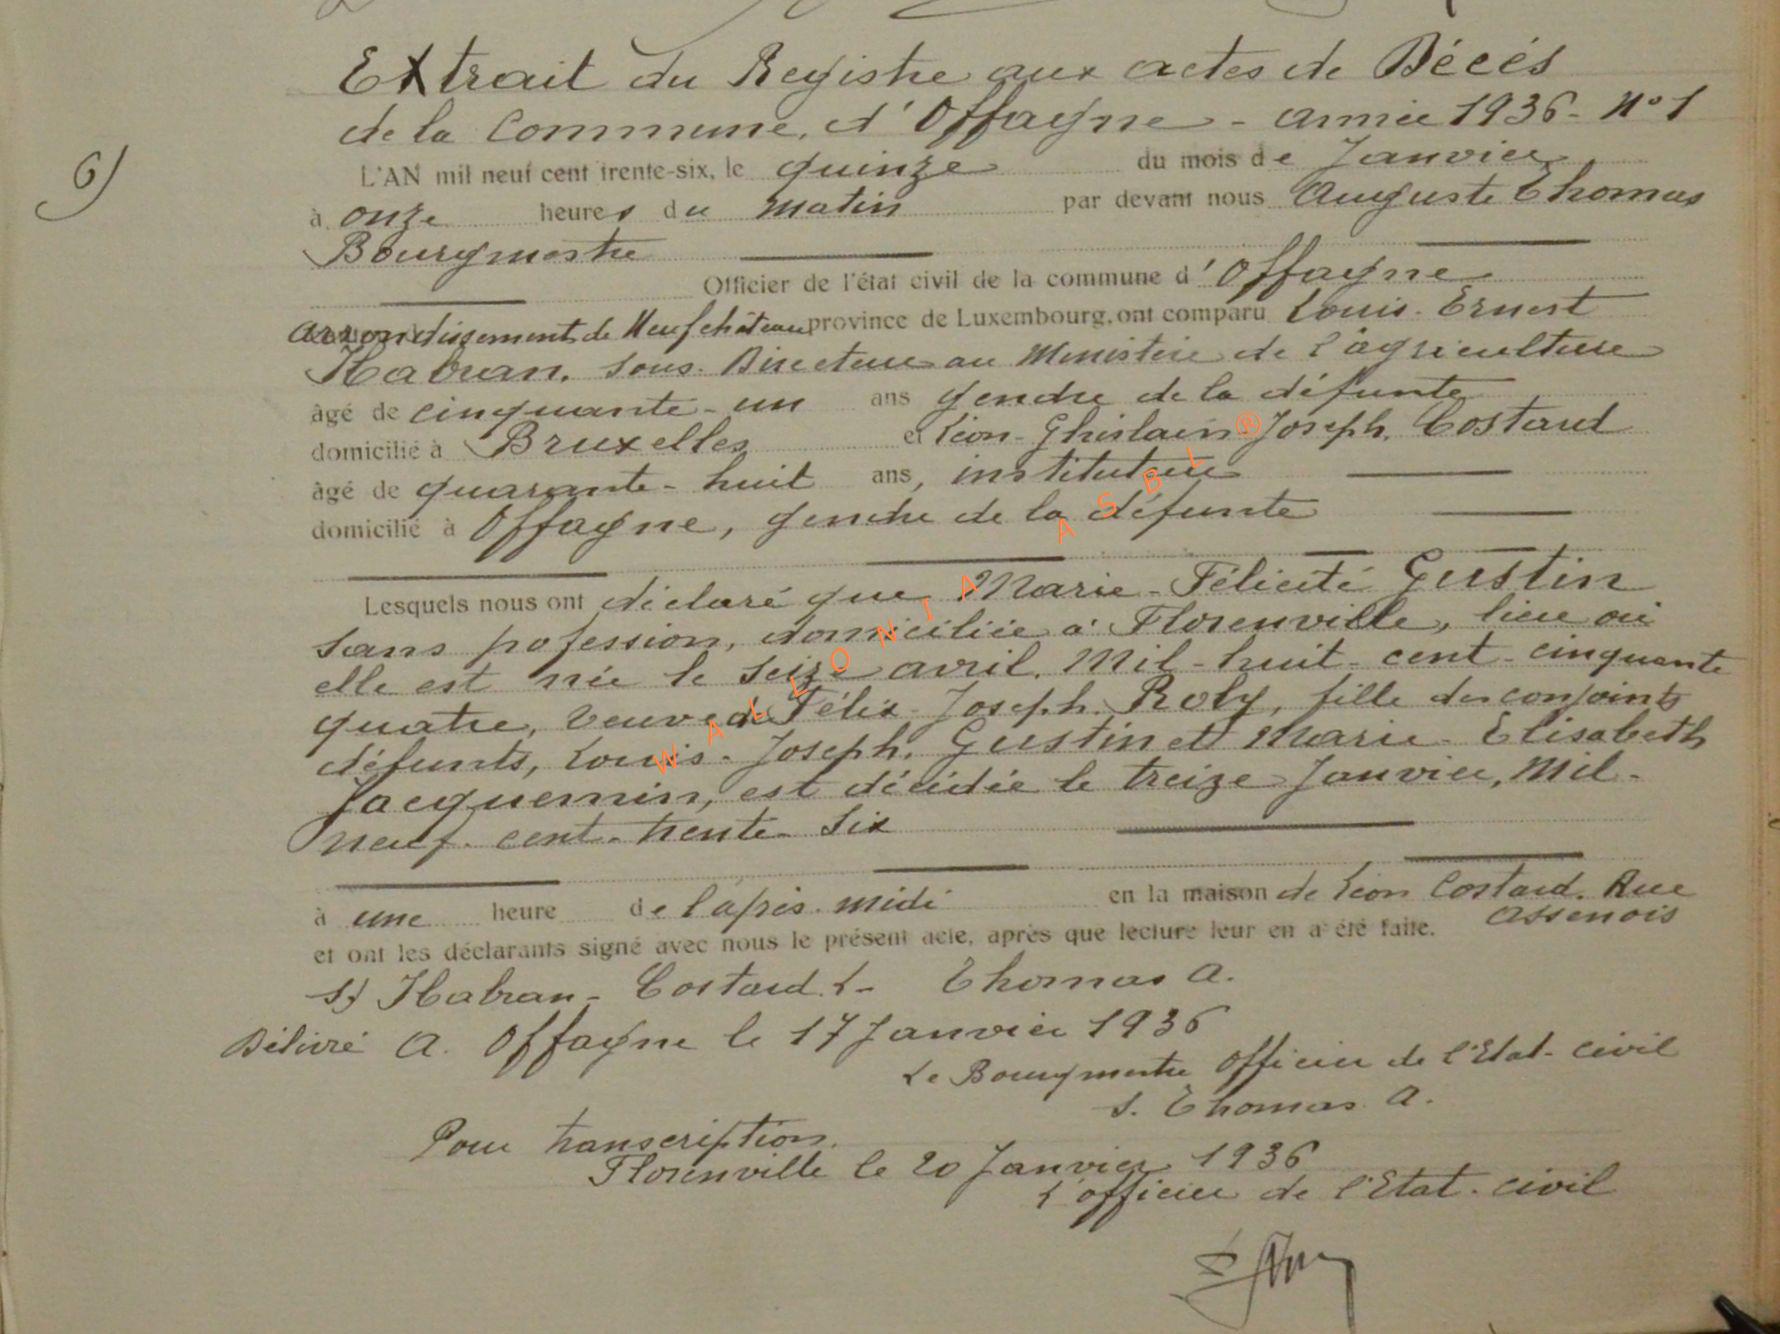 Extrait du Registre aux actes de Décés
de la Commune, d'Offagne - année 1936 - N° 1
6)
L'AN mil neuf cent trente-six, le quinze du mois de Janvier,
à onze heures du matin par devant nous Auguste Thomas
Bourgmestre
Officier de l'état civil de la commune d'Offagne
arrondissement de Neufchâteau province de Luxembourg, ont comparu Louis-Ernest
Habran, Sous-Directeur au Ministère de l'agriculture
âgé de cinquante-un ans gendre de la défunte
domicilié à Bruxelles et Léon-Ghislain Joseph, Costard
âgé de quarante-huit ans, instituteur
domicilié à Offagne, gendre de la défunte
Lesquels nous ont déclaré que, Marie-Félicité Gustin
sans pofession, domiciliée à Florenville, lieu où
elle est née le seize avril, Mil-huit-cent-cinquante
quatre, veuve de Félix-Joseph Roly, fille des conjoints
défunts, Louis-Joseph, Gustin et Marie-Elisabeth
Jacquemin, est décédée le treize Janvier, Mil-
neuf-cent-trente-Six
à une heure de l'après-midi en la maison de Léon Costard, Rue
assenois
et ont les déclarants signé avec nous le présent acte, après que lecture leur en a été faite.
s) Habran - Costard L - Thomas A.
Délivré A. Offagne le 17 Janvier 1936
Le Bourgmestre Officier de l'Etat-civil
s. Thomas A.
Pour transcription.
Florenville le 20 Janvier 1936
L'officier de l'Etat-civil
WALLONIA ASBL ®